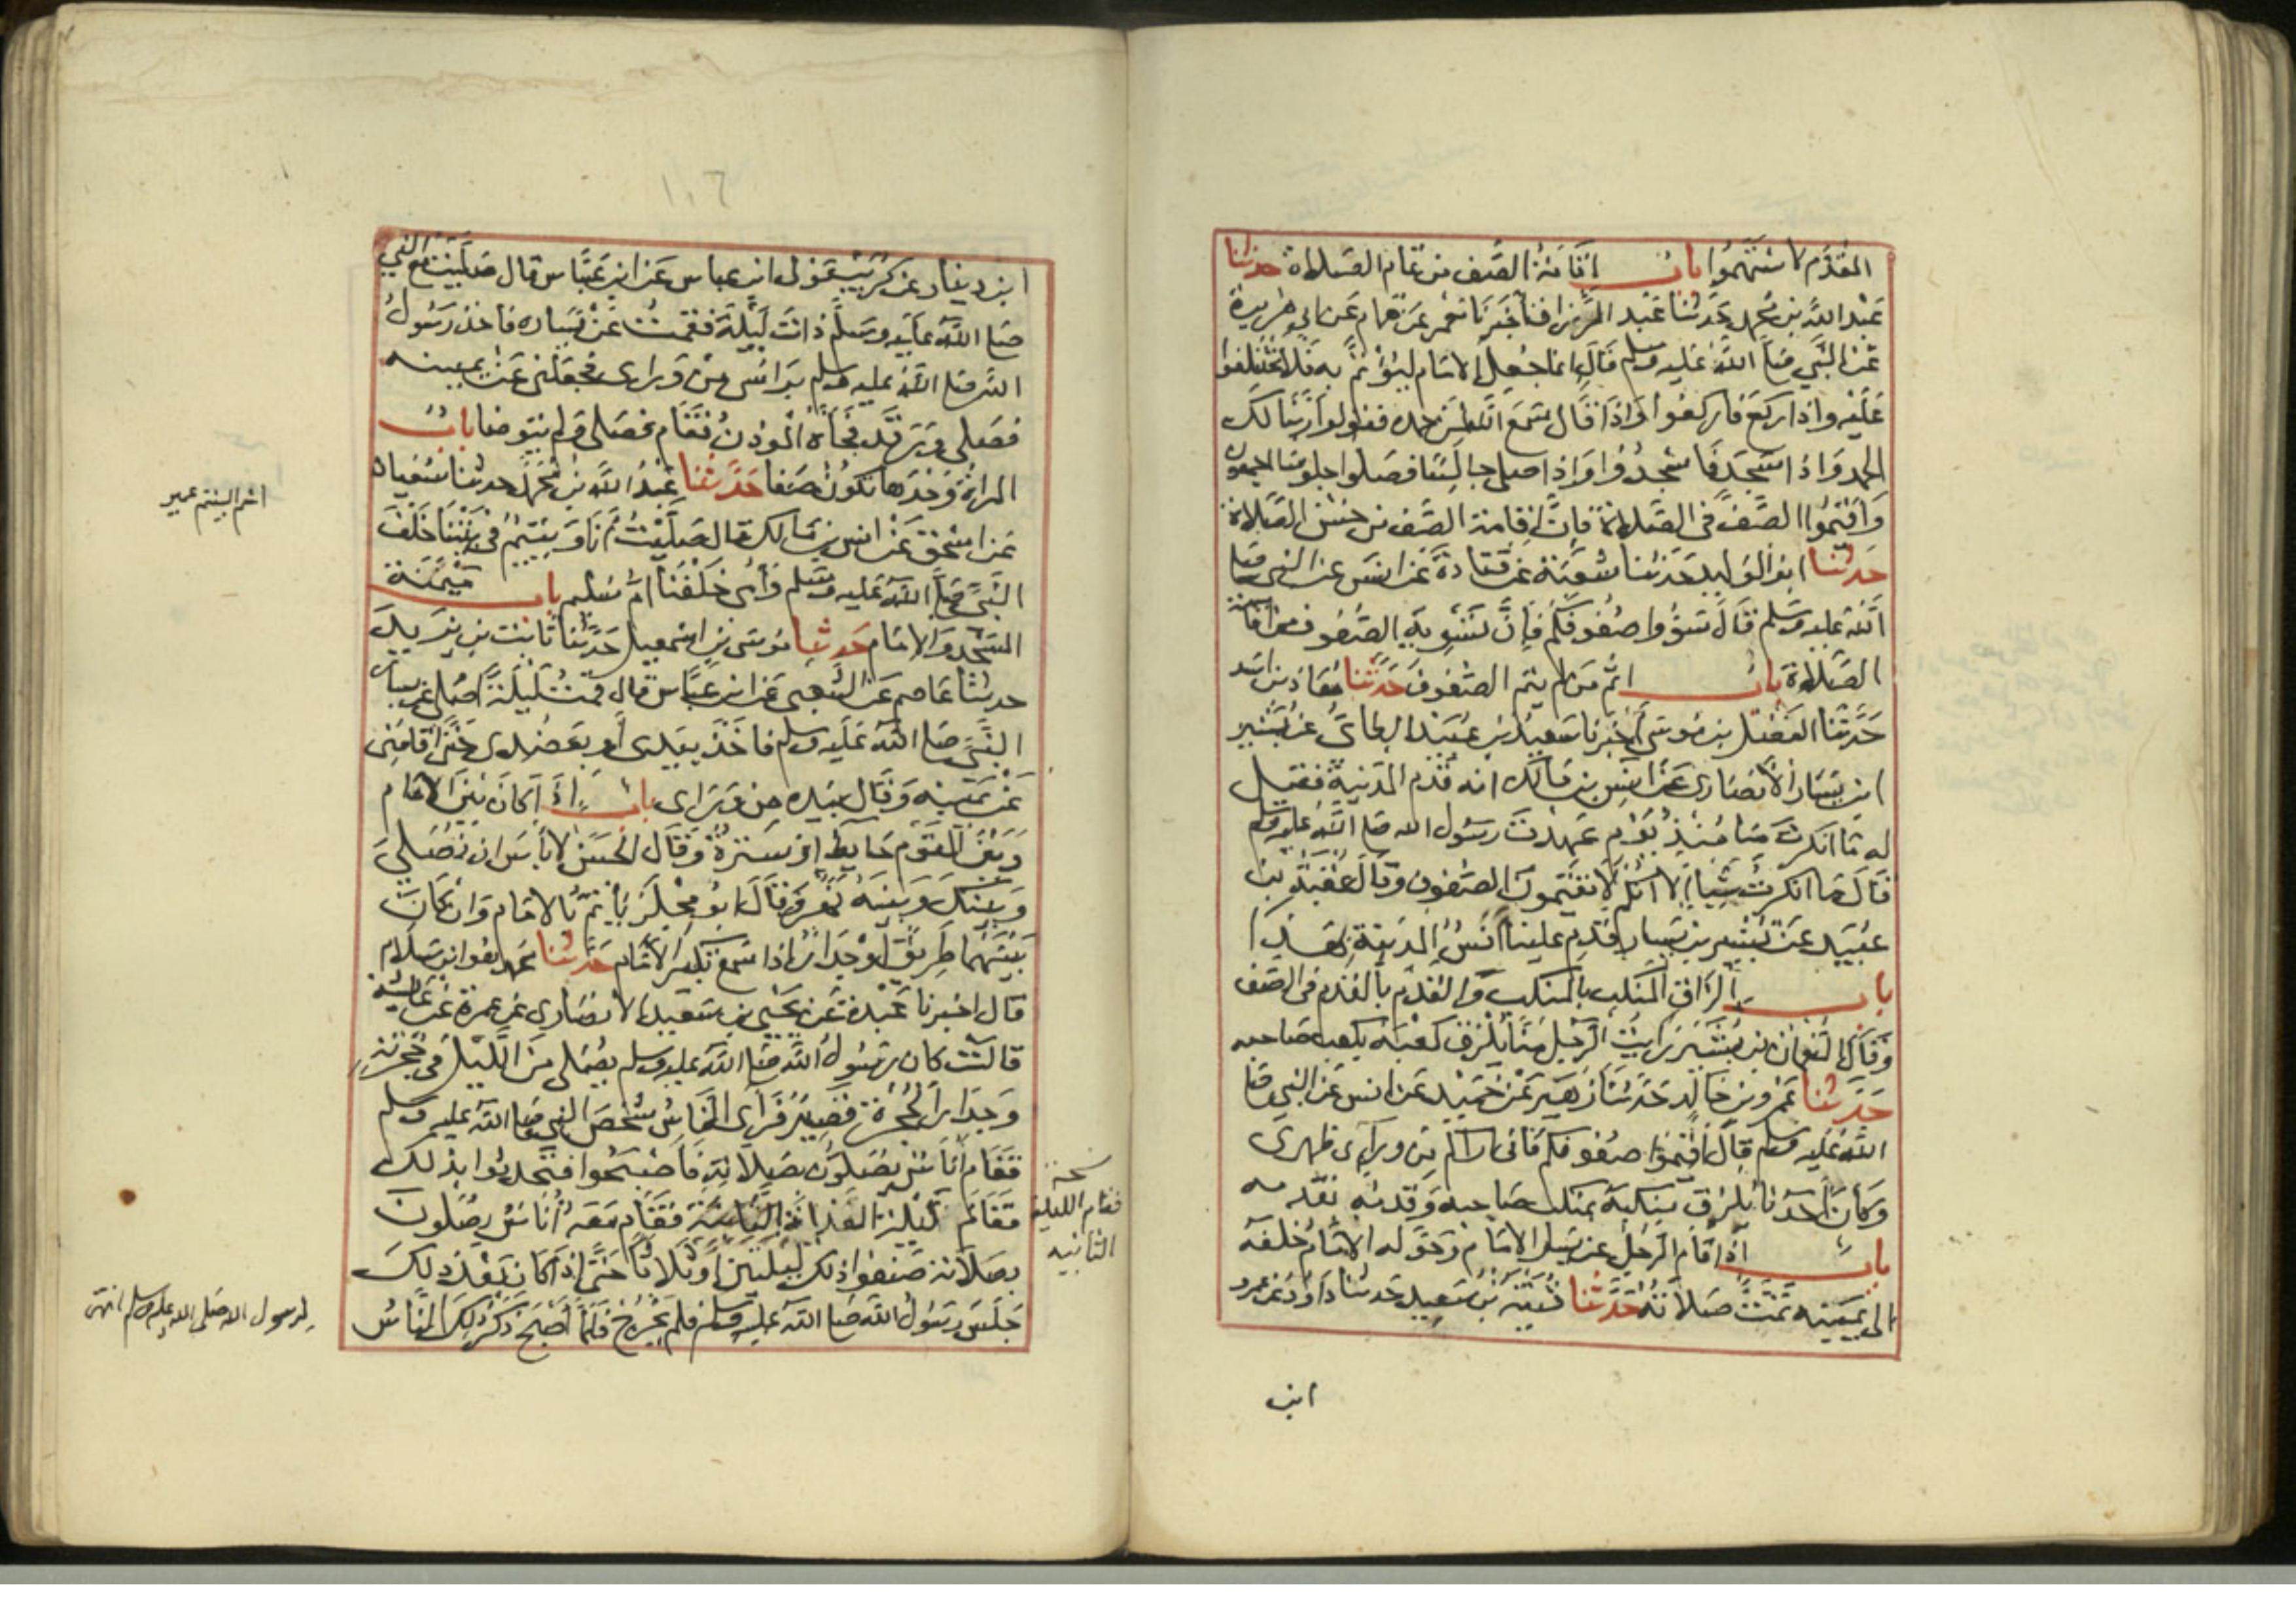 المقدم لاستهموا باب اقامة الصف من تمام الصلاة حدثنا
عبد الله بن محمد حدثنا عبد الرزاق انا اخبرنا معمر عن همام عن ابي هريرة
عن النبي صلى الله عليه وسلم قال انما جعل الامام ليؤتم به فلا تختلفوا
عليه واذا ركع فاركعوا واذا قال سمع الله لمن حمده فقولوا ربنا لك
الحمد واذا سجد فاسجدوا واذا صلى جالسا فصلوا جلوسا اجمعون
واقيموا الصف في الصلاة فان اقامة الصف من حسن الصلاة
حدثنا ابو الوليد حدثنا شعبة عن قتادة عن انس عن النبي صلى
الله عليه وسلم قال سووا صفوفكم فان تسوية الصفوف من اقامة
الصلاة باب اثم من لم يتم الصفوف حدثنا معاذ بن اسد
حدثنا الفضل بن موسى اخبرنا سعيد بن عبيد الطائي عن بشير
ابن يسار الانصاري عن انس بن مالك انه قدم المدينة فقيل
له ما انكرت منا منذ يوم عهدت رسول الله صلى الله عليه وسلم
قال ما انكرت شيا الا انكم لا تقيمون الصفوف وقال عقبة بن
عبيد عن بشير بن يسار قدم علينا انس المدينة بهذا
باب الزاق المنكب بالمنكب والقدم بالقدم في الصف
وقال النعمان بن بشير رايت الرجل منا يلزق كعبه بكعب صاحبه
حدثنا عمرو بن خالد حدثنا زهير عن حميد عن انس عن النبي صلى
الله عليه وسلم قال اقيموا صفوفكم فاني اراكم من وراي ظهري
وكان احدنا يلزق منكبه بمنكب صاحبه وقدمه بقدمه
باب اذا قام الرجل عن يسار الامام وحوله الامام خلفه
الى يمينه تمت صلاته حدثنا قتيبة بن سعيد حدثنا داود عن عمرو
ابن
١٠٦
ابن دينار عن كريب مولى ابن عباس عن ابن عباس قال صليت مع النبي
صلى الله عليه وسلم ذات ليلة فقمت عن يساره فاخذ رسول
الله صلى الله عليه وسلم براسي من وراى فجعلني عن يمينه
فصلى ورقد فجاه الموذن فقام فصلى ولم يتوضا باب
المراة وحدها تكون صفا حدثنا عبد الله بن محمد حدثنا سفيان
عن اسحق عن انس بن مالك قال صليت انا ويتيم في بيتنا خلف
النبي صلى الله عليه وسلم وامى خلفنا ام سليم باب ميمنة
المسجد والامام حدثنا موسى بن اسمعيل حدثنا ثابت بن يزيد
حدثنا عاصم عن الشعبي عن ابن عباس قال قمت ليلة اصلي عن يسار
النبي صلى الله عليه وسلم فاخذ بيدى او بعضدى حتى اقامني
عن يمينه وقال بيده من وراى باب اذا كان بين الامام
وبين القوم حايط او سترة وقال الحسن لا باس ان تصلي
وبينك وبينه نهر وقال ابو مجلز ياتم بالامام وان كان
بينهما طريق او جدار اذا سمع تكبير الامام حدثنا محمد هو ابن سلام
قال اخبرنا عبدة عن يحيى بن سعيد الانصاري عن عمرة عن عائشة
قالت كان رسول الله صلى الله عليه وسلم يصلى من الليل في حجرته
وجدار الحجرة قصير فراى الناس شخص النبي صلى الله عليه وسلم
فقام اناس يصلون بصلاته فاصبحوا فتحدثوا بذلك
فقام ليلة الغداة الثانية فقام معه اناس يصلون
بصلاته صنعوا ذلك ليلتين او ثلاثا حتى اذا كان بعد ذلك
جلس رسول الله صلى الله عليه وسلم فلم يخرج فلما اصبح ذكر ذلك الناس
اسم اليتيم عمير
نسخة
فقام الليلة
الثانيه
لرسول الله صلى الله عليه وسلم انتهى